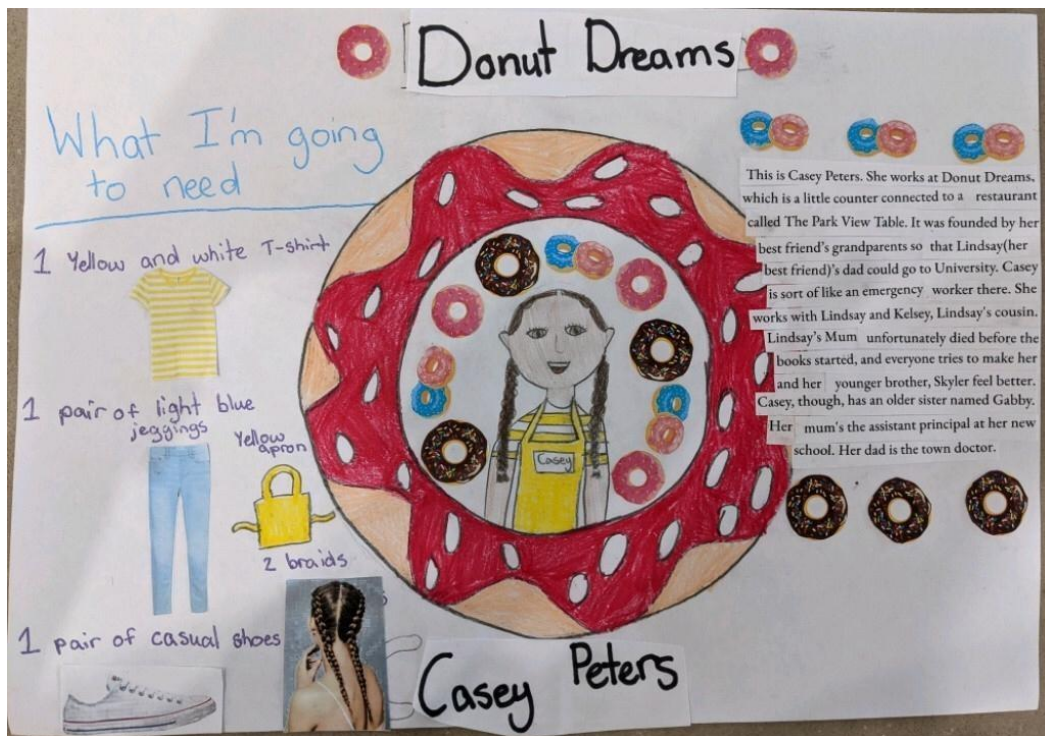 Donut Dreams
What I'm going
to need
1 Yellow and white T-shirt
1 pair of light blue
jeggings
Yellow
apron
2 braids
1 pair of casual shoes
Casey
Casey Peters
This is Casey Peters. She works at Donut Dreams,
which is a little counter connected to a restaurant
called The Park View Table. It was founded by her
best friend's grandparents so that Lindsay(her
best friend)'s dad could go to University. Casey
is sort of like an emergency worker there. She
works with Lindsay and Kelsey, Lindsay's cousin.
Lindsay's Mum unfortunately died before the
books started, and everyone tries to make her
and her younger brother, Skyler feel better.
Casey, though, has an older sister named Gabby.
Her mum's the assistant principal at her new
school. Her dad is the town doctor.